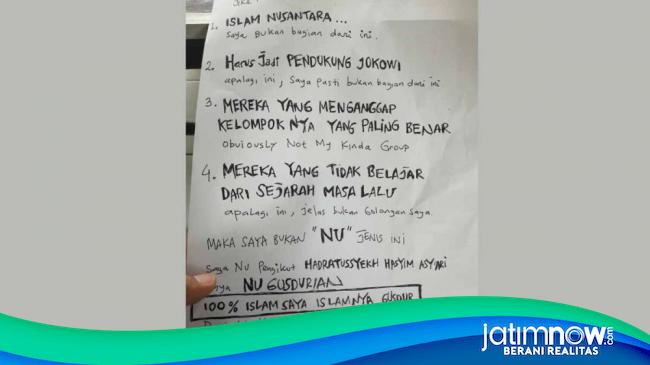 1. ISLAM NUSANTARA ...
saya bukan bagian dari ini.
2. Harus Jadi PENDUKUNG JOKOWI
apalagi ini, saya pasti bukan bagian dari ini
3. MEREKA YANG MENGANGGAP
KELOMPOK NYA YANG PALING BENAR
Obviously Not My Kinda Group
4. MEREKA YANG TIDAK BELAJAR
DARI SEJARAH MASA LALU
apalagi ini, jelas bukan Golongan saya.
MAKA SAYA BUKAN "NU" JENIS INI
Saya NU Pengikut HADRATUSSYEKH HASYIM ASY'ARI
NU GUSDURIAN
100% ISLAM SAYA ISLAMNYA GUSDUR
jatimnow.com
BERANI REALITAS